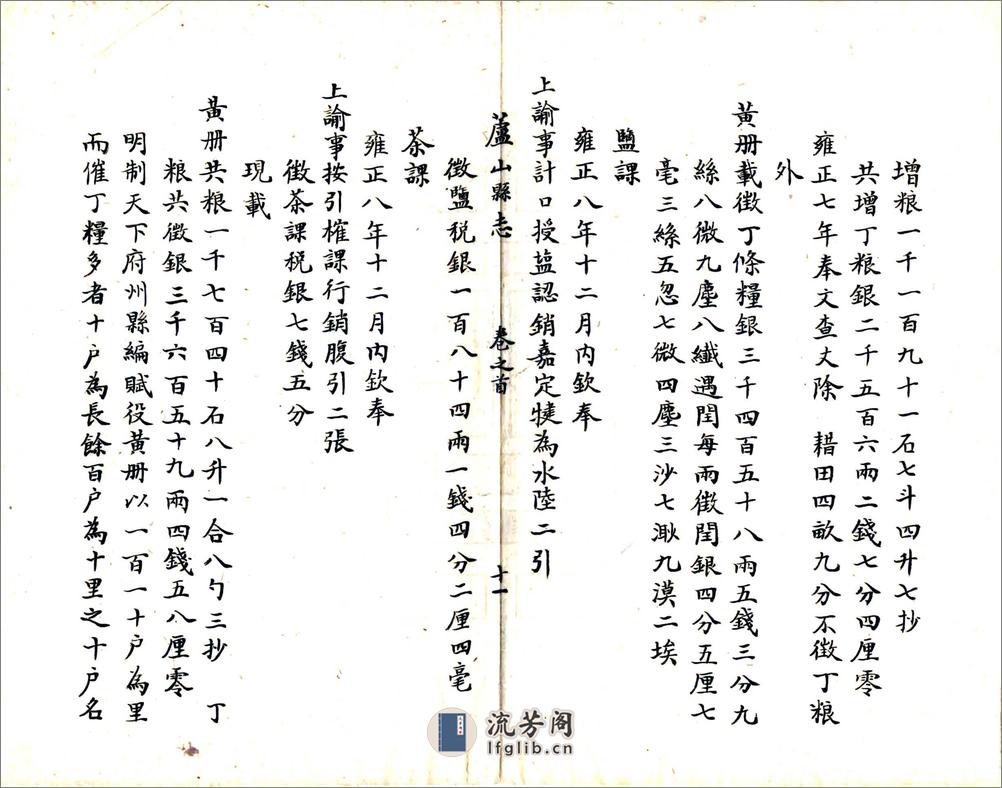 增粮一千一百九十一石七斗四升七抄
共增丁粮銀二千五百六兩二錢七分四厘零
雍正七年奉文查丈除 耤田四畝九分不徵丁粮
外
黃册載徵丁條糧銀三千四百五十八兩五錢三分九
絲八微九塵八纎遇閏每兩徵閏銀四分五厘七
毫三絲五忽七微四塵三沙七渺九漠二埃
鹽課
雍正八年十二月內欽奉
上諭事計口授盐認銷嘉定犍為水陸二引
蘆山縣志 卷之首 十一
徵鹽税銀一百八十四兩一錢四分二厘四毫
茶課
雍正八年十二月內欽奉
上諭事按引榷課行銷腹引二張
徵茶課税銀七錢五分
現載
黃册共粮一千七百四十石八升一合八勺三抄 丁
粮共徵銀三千六百五十九兩四錢五八厘零
明制天下府州縣編賦役黃册以一百一十户為里
而催丁糧多者十户為長餘百户為十里之十户名
流芳阁
lfglib.cn